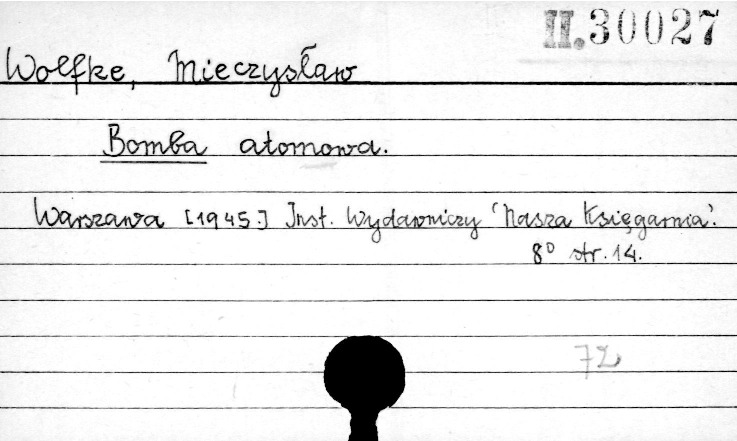 II.30027
Wolfke, Mieczysław
Bomba atomowa.
Warszawa [1945.] Inst. Wydawniczy "Nasza Księgarnia".
8° str. 14.
72